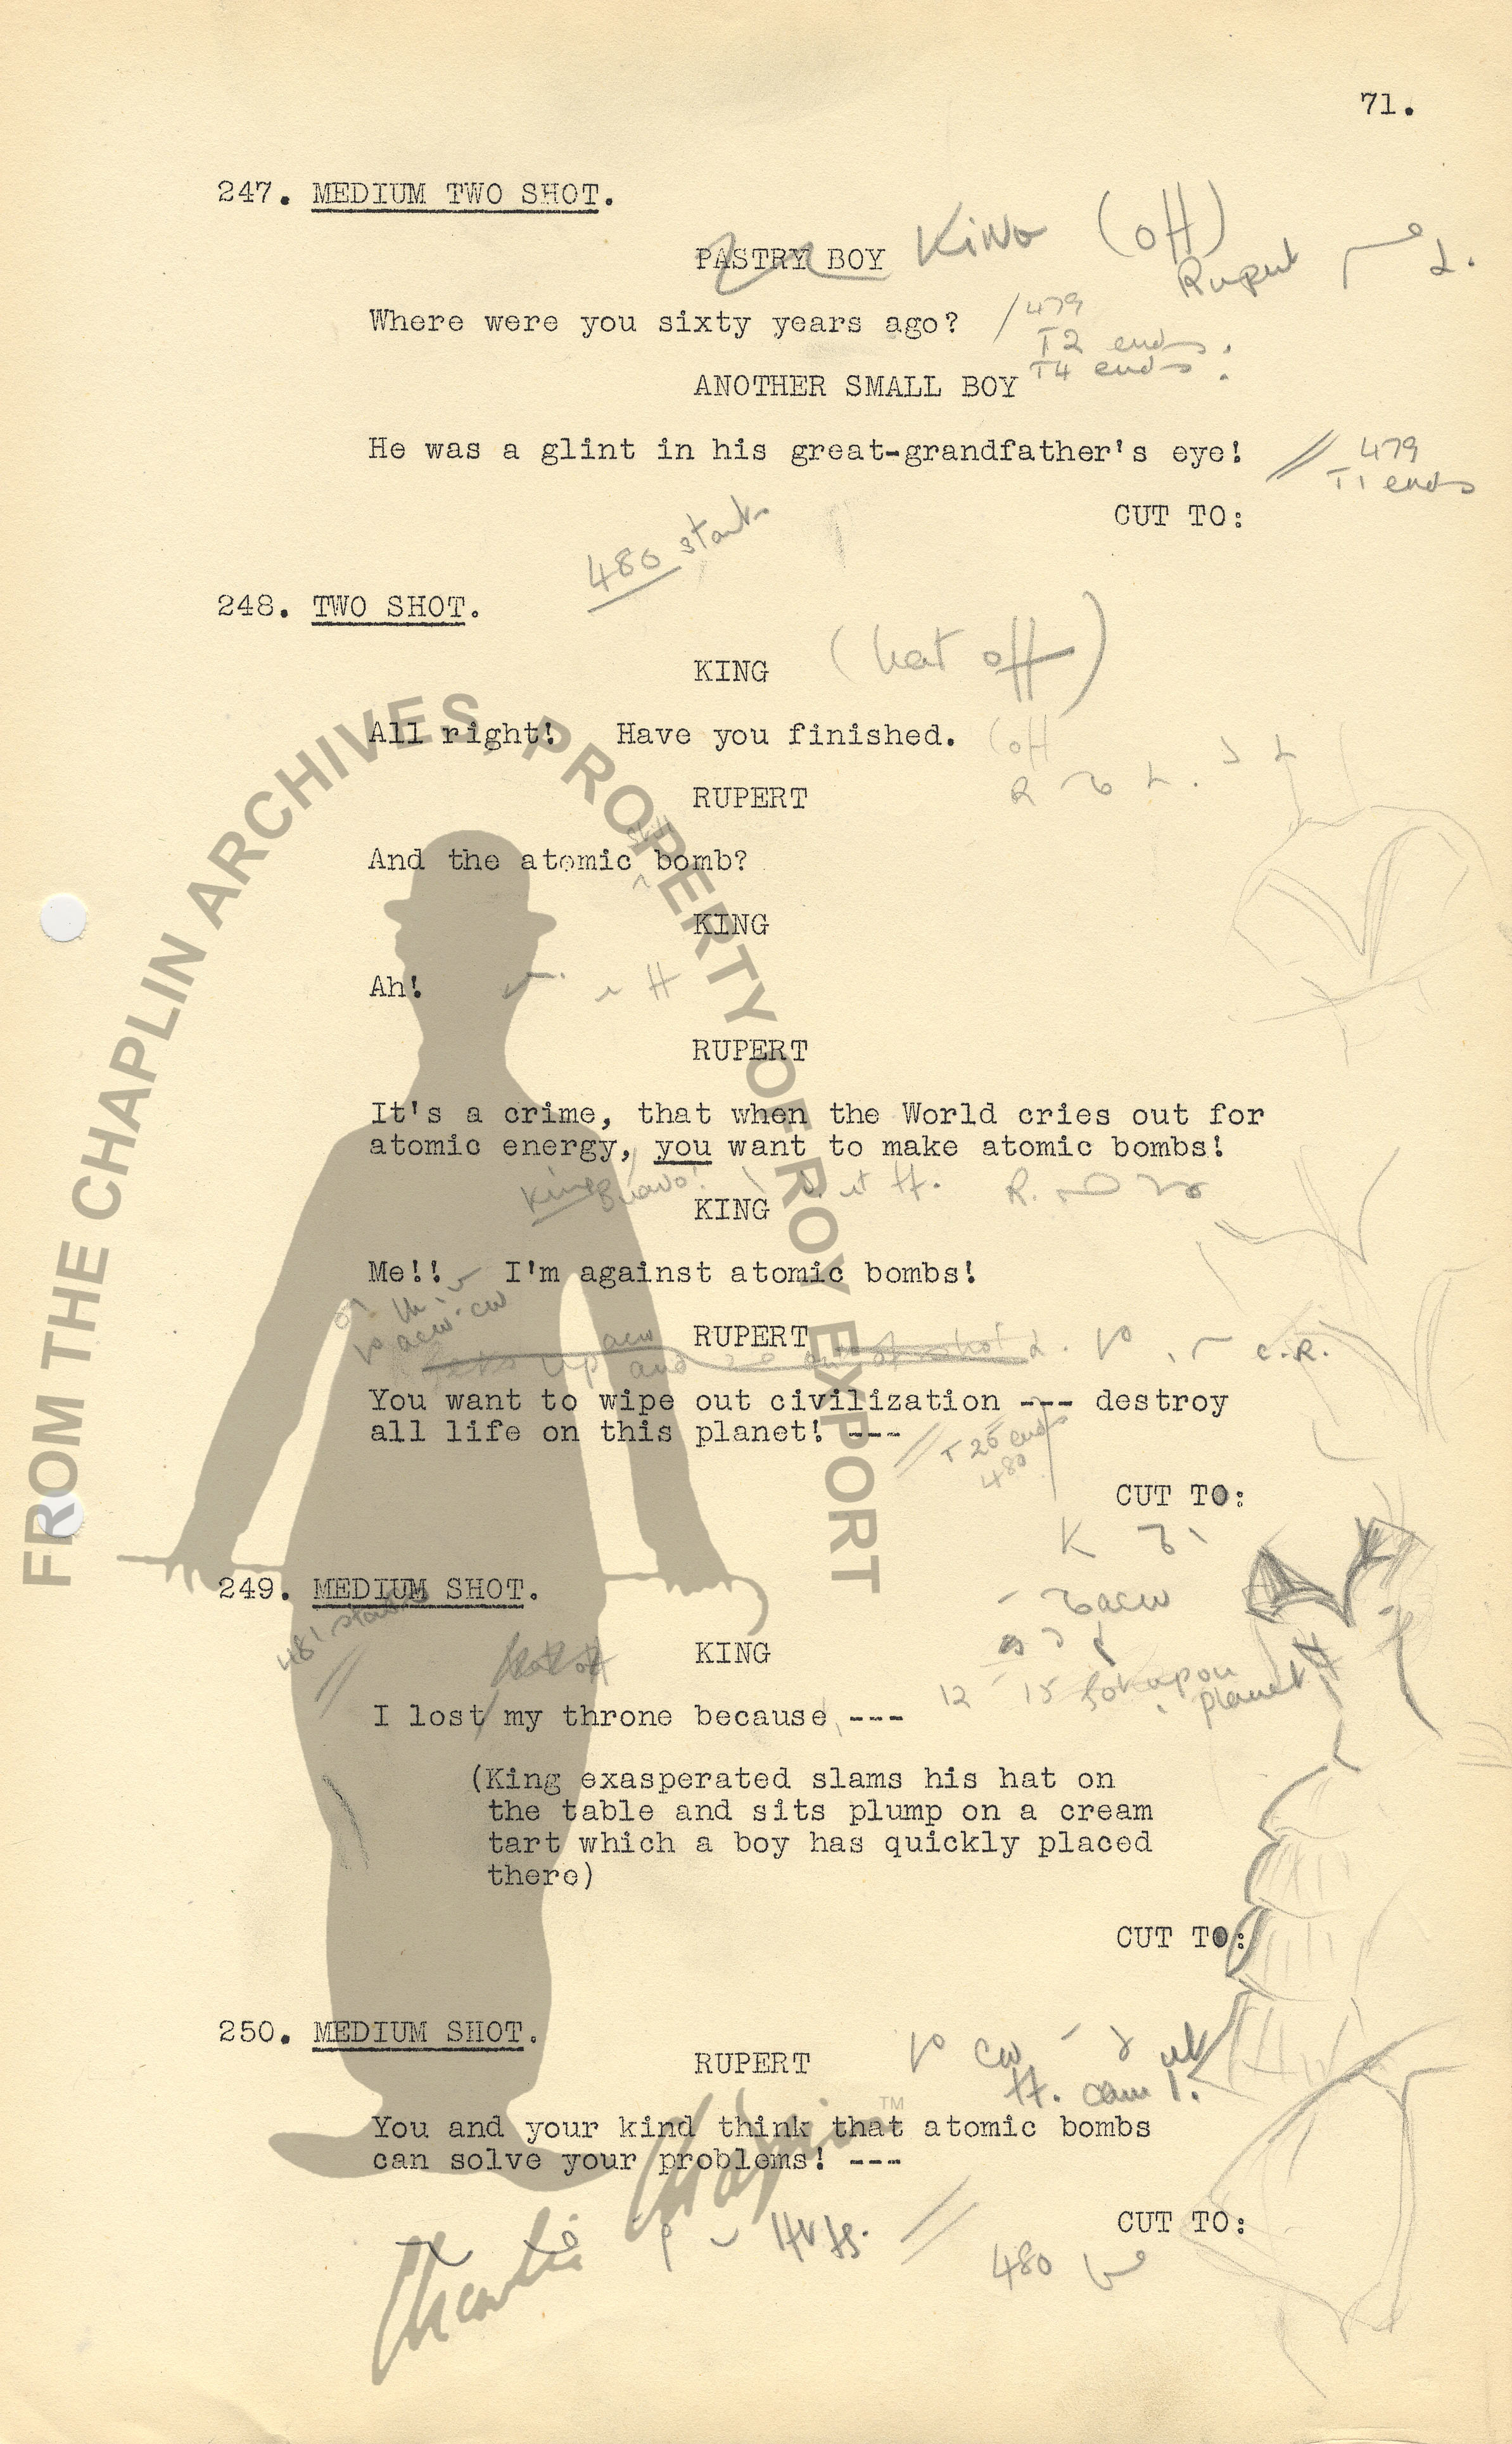 71.
247. MEDIUM TWO SHOT.
PASTRY BOY KING (off)
Rupert L.
Where were you sixty years ago? /479
T2 ends.
T4 ends.
ANOTHER SMALL BOY
He was a glint in his great-grandfather's eye! // 479
T1 ends
CUT TO:
480 start
248. TWO SHOT.
KING (hat off)
All right! Have you finished. (off
RUPERT
And the atomic bomb?
KING
Ah!
RUPERT
It's a crime, that when the World cries out for
atomic energy, you want to make atomic bombs!
King
KING
Me!! I'm against atomic bombs!
acw cw
RUPERT
up and acw shot C.R.
You want to wipe out civilization --- destroy
all life on this planet! ---
// T 25 ends
480
CUT TO:
K
249. MEDIUM SHOT.
481 start
acw
hat off
KING
12 15 planet
I lost my throne because ---
(King exasperated slams his hat on
the table and sits plump on a cream
tart which a boy has quickly placed
there)
CUT TO:
250. MEDIUM SHOT.
RUPERT cw
You and your kind think that atomic bombs
can solve your problems! ---
CUT TO:
480
FROM THE CHAPLIN ARCHIVES, PROPERTY OF ROY EXPORT
Charlie Chaplin ™